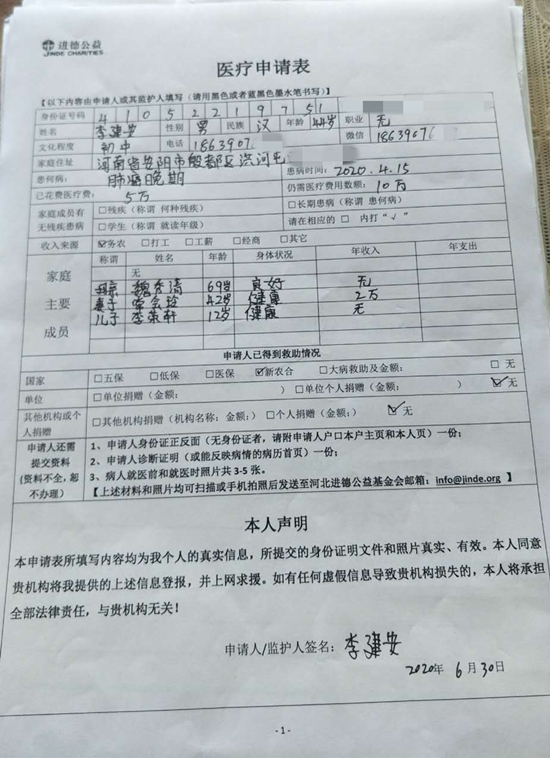 进德公益
JINDE CHARITIES
医疗申请表
【以下内容由申请人或其监护人填写（请用黑色或者蓝黑色墨水笔书写）】
身份证号码 4 1 0 5 2 2 1 9 7 5 1
姓名 李建安 性别 男 民族 汉 年龄 44岁 职业 无
文化程度 初中 电话 1863907 微信 1863907
家庭住址 河南省安阳市殷都区洪河屯
患何病： 肺癌晚期 患病时间：2020.4.15
已花费医疗费： 5万 仍需医疗费用数额：10万
家庭成员有无残疾患病 □残疾（称谓 何种残疾） □长期患病（称谓 患何病）
□学生（称谓 就读年级） 请在相应的 □ 内打“√”
收入来源 ☑务农 □打工 □工薪 □经商 □其它
家庭主要成员 称谓 姓名 年龄 身体状况 年收入 年支出
无
母亲 魏秀清 69岁 良好 无
妻子 42岁 健康 2万
儿子 李荣轩 12岁 健康 无
申请人已得到救助情况
国家 □五保 □低保 □医保 ☑新农合 □大病救助及金额： □ 无
单位 □单位捐赠（金额： ） □单位个人捐赠（金额： ） ☑无
其他机构或个人捐赠 □其他机构捐赠（机构名称；金额；） □个人捐赠（金额；） ☑无
申请人还需提交资料（资料不全，恕不办理）
1、申请人身份证正反面（无身份证者，请附申请人户口本户主页和本人页）一份；
2、申请人诊断证明（或能反映病情的病历首页）一份；
3、病人就医前和就医时照片共 3-5 张。
【上述材料和照片均可扫描或手机拍照后发送至河北进德公益基金会邮箱：info@jinde.org】
本人声明
本申请表所填写内容均为我个人的真实信息，所提交的身份证明文件和照片真实、有效。本人同意
贵机构将我提供的上述信息登报，并上网求援。如有任何虚假信息导致贵机构损失的，本人将承担
全部法律责任，与贵机构无关！
申请人/监护人签名：李建安
2020年 6月30日
- 1 -